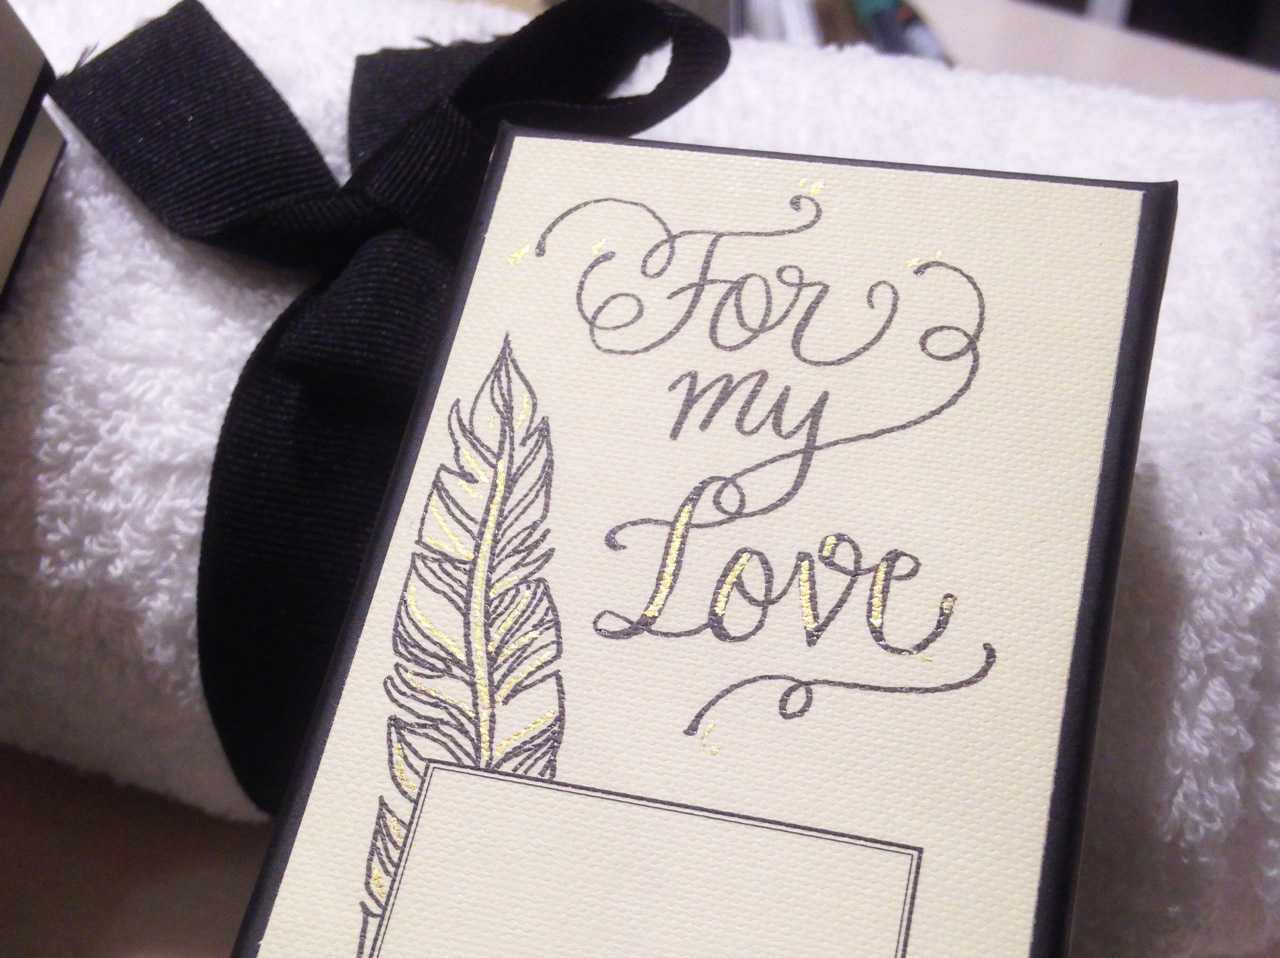 For
my
Love